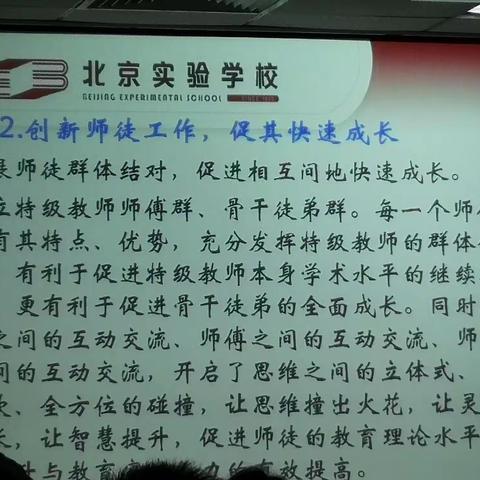 北京实验学校
BEIJING EXPERIMENTAL SCHOOL
2.创新师徒工作，促其快速成长
师徒群体结对，促进相互间地快速成长。
特级教师师傅群、骨干徒弟群。每一个师
有其特点、优势，充分发挥特级教师的群体
有利于促进特级教师本身学术水平的继续
更有利于促进骨干徒弟的全面成长。同时
之间的互动交流、师傅之间的互动交流、师
间的互动交流，开启了思维之间的立体式、
、全方位的碰撞，让思维撞出火花，让灵
长，让智慧提升，促进师徒的教育理论水平
与教育 力的有效提高。